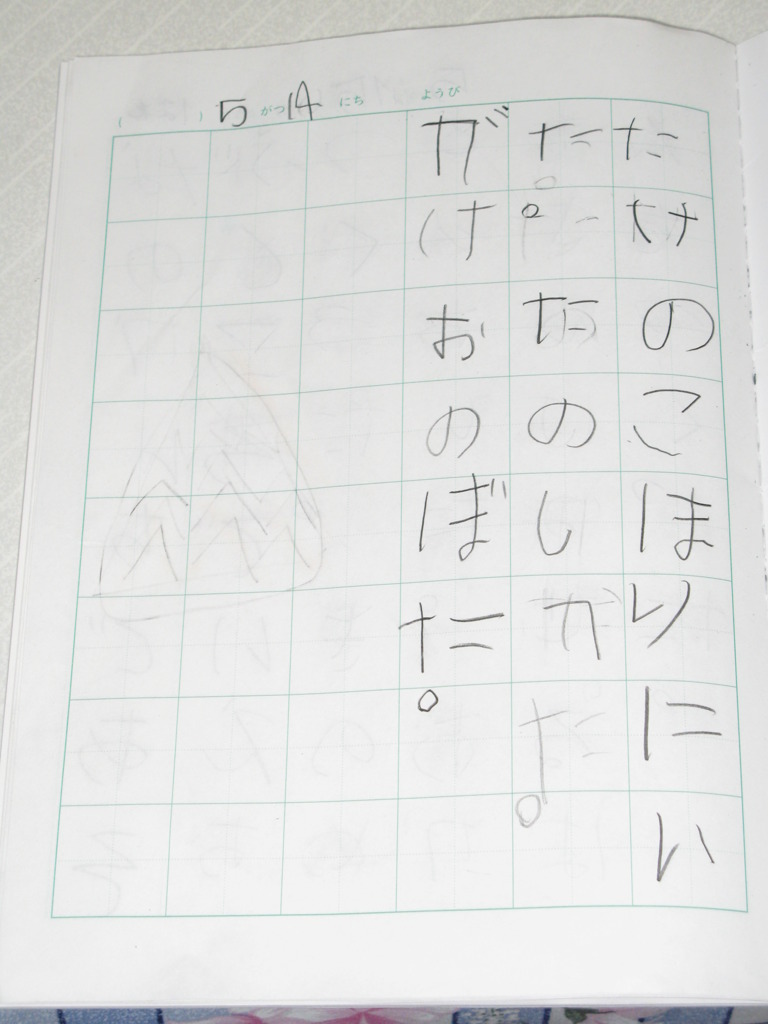 ( ) 5 がつ 14 にち ようび
たけのこほりにい
た。たのしかた。
がけおのぼた。